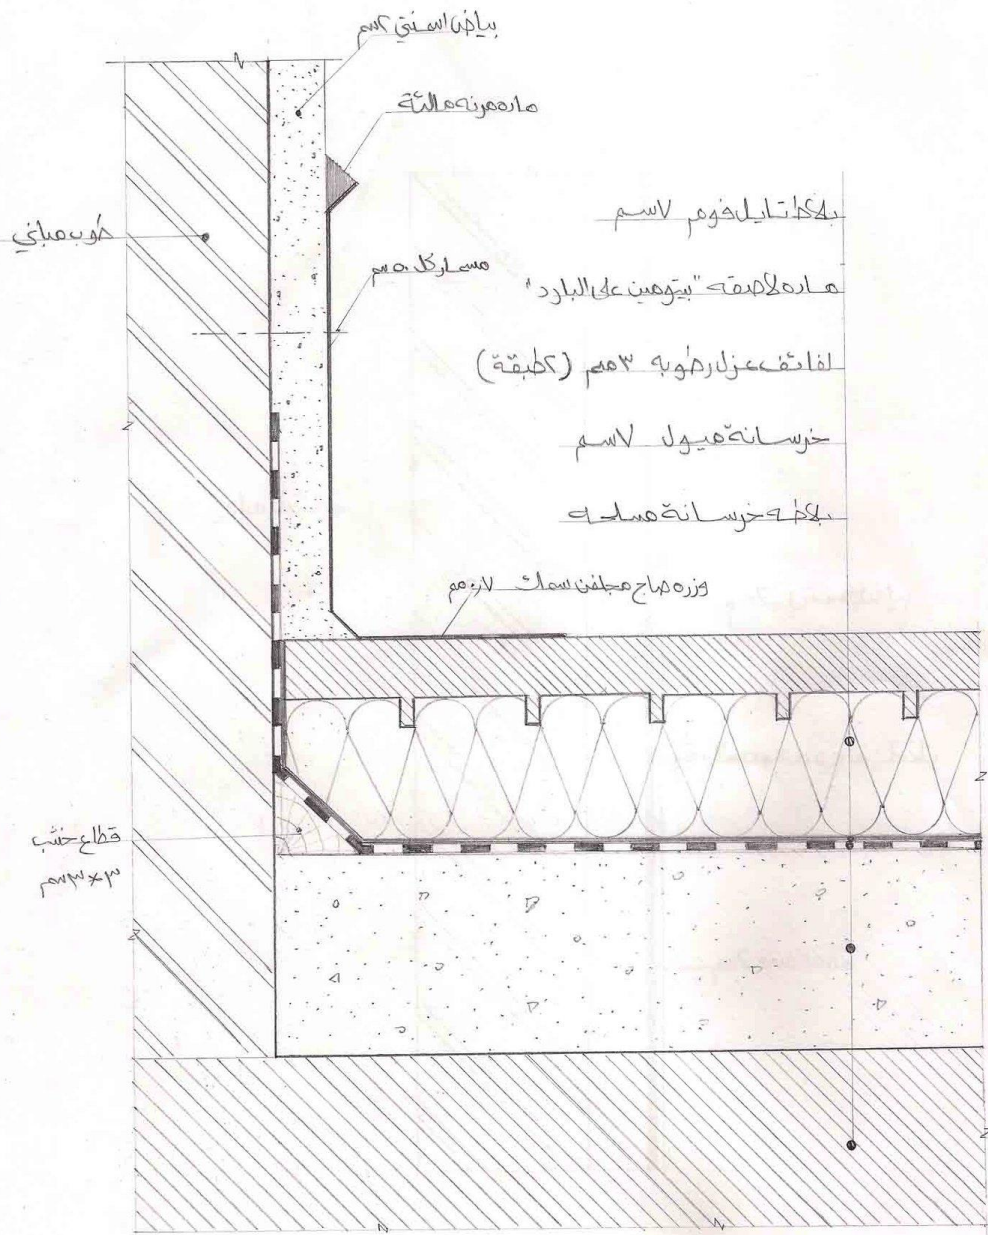 بياض اسمنتي ٢سم
ماده مرنه مالئة
طوب مباني
مسمار كل ٥٠سم
بلاط تايل فوم ٧سم
ماده لاصقه "بيتومين على البارد"
لفائف عزل رطوبه ٣مم (٢طبقة)
خرسانة ميول ٧سم
بلاطه خرسانة مسلحه
وزره صاج مجلفن سمك ٠,٧مم
قطاع خشب
٣×٣سم